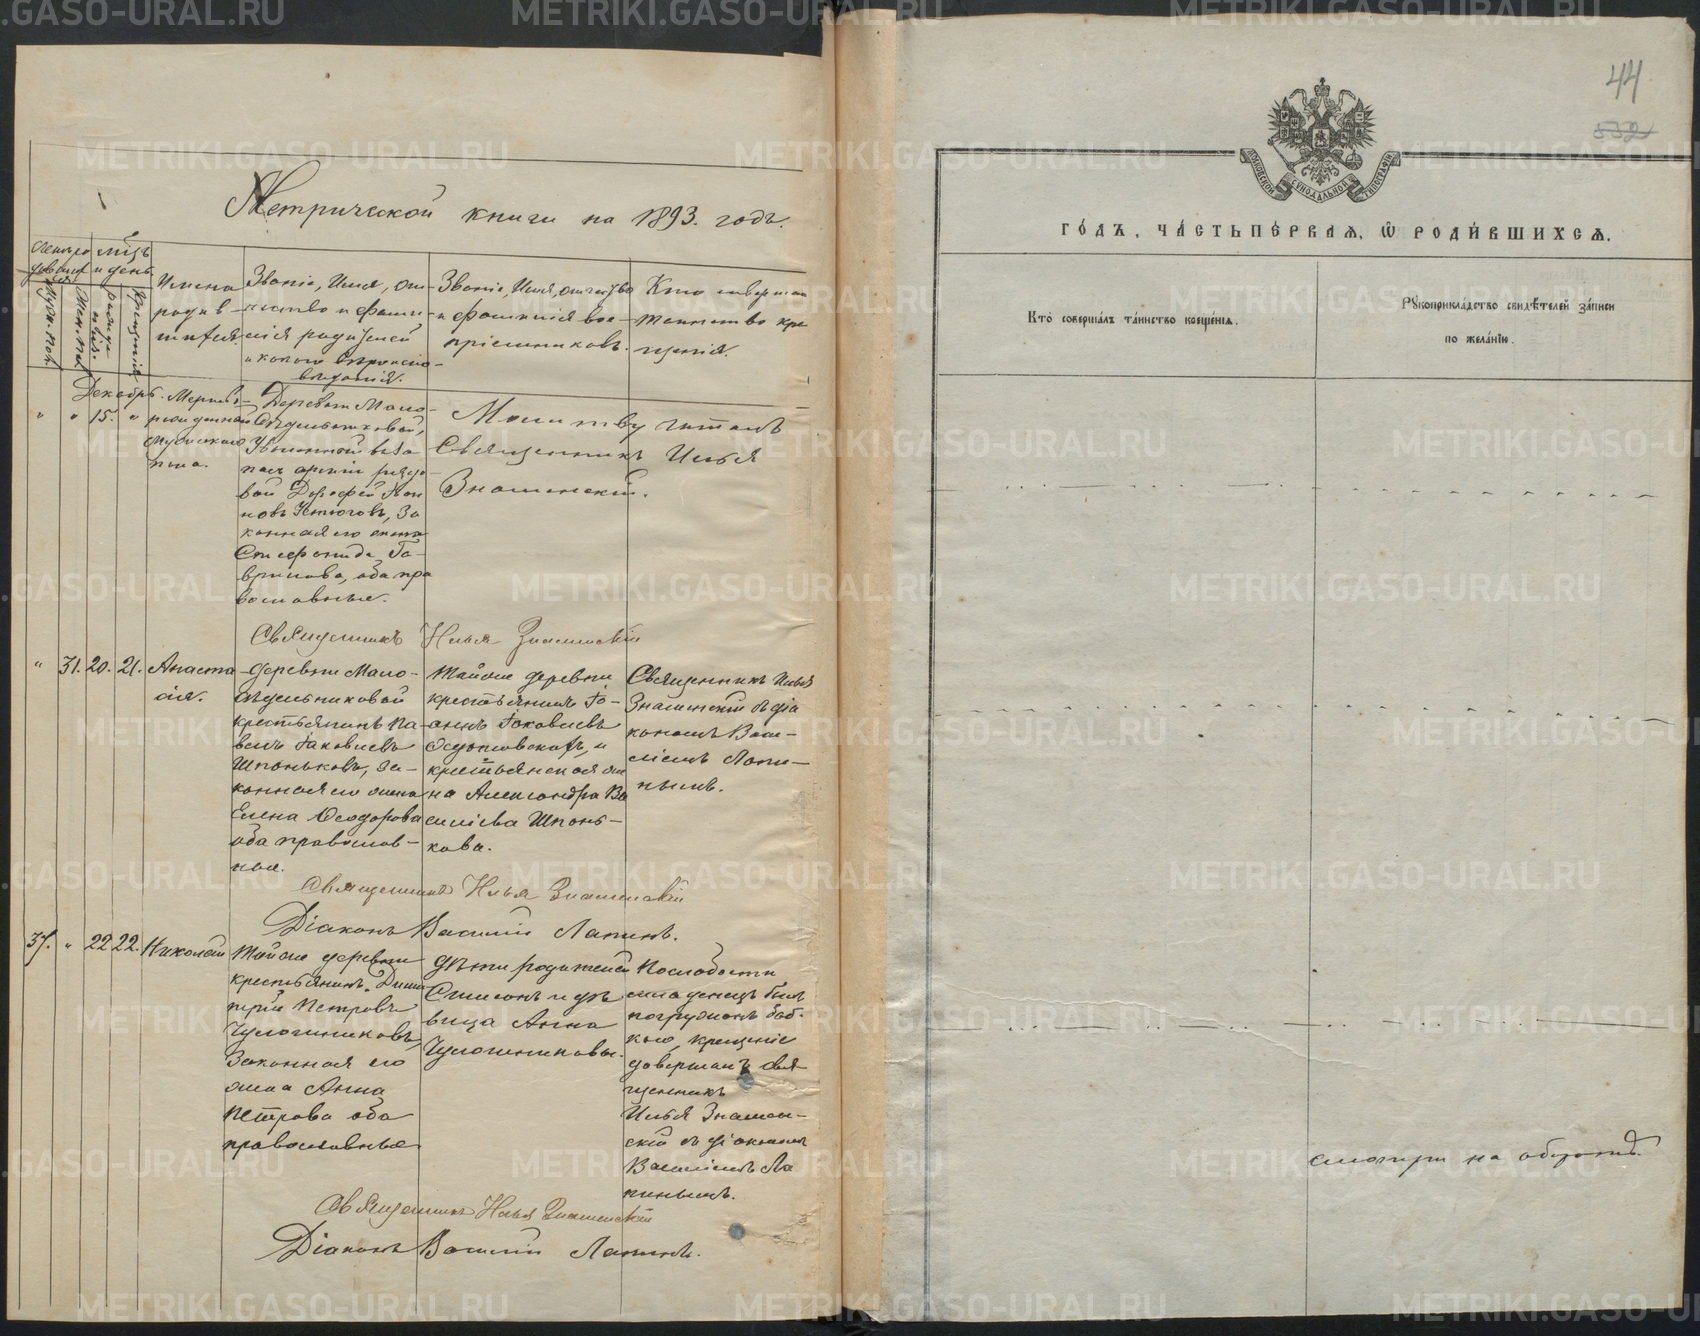 Метрической книги на 1893. годъ.
мѣсяцъ и день
рожденія
крещенія
Муж. пол.
Жен. пол.
Имена родившихся.
Званіе, Имя, отчество и фамилія родителей и какого вѣроисповѣданія.
Званіе, Имя, отчество и фамилія воспріемниковъ.
Кто совершалъ таинство крещенія.
Декабрь.
" " 15. "
Мертворожденный мужскаго пола.
Деревни Мало-
вой Дорофей
новъ Устюговъ, за-
конная его жена
Степанида Га-
врилова, оба пра-
вославные.
Молитву читалъ
Священникъ Илья
Знаменскій.
Священникъ Илья Знаменскій
" 31. 20. 21.
Анаста-
сія.
Деревни Мало-
крестьянинъ Па-
велъ Іаковлевъ
Шпоньковъ, за-
конная его жена
Елена Ѳеодорова
оба православ-
ные.
Тойже деревни
крестьянинъ Іо-
аннъ Іаковлевъ
и
крестьянская же-
на Александра Ва-
силіева Шпонь-
кова.
Священникъ Илья
Знаменскій съ діа-
кономъ Васи-
ліемъ Лапи-
нымъ.
Священникъ Илья Знаменскій
Діаконъ Василій Лапинъ.
37. " 22 22.
Николай
Тойже деревни
крестьянинъ Дими-
трій Петровъ
Чулочниковъ,
Законная его
жена Анна
Петрова оба
православные
дѣти родителей
Симеонъ и дѣ-
вица Анна
Чулочниковы.
По слабости
младенецъ былъ
погружонъ баб-
кою, крещеніе
довершалъ свя-
щенникъ
Илья Знамен-
скій съ діакономъ
Василіемъ Ла-
пинымъ.
Священникъ Илья Знаменскій
Діаконъ Василій Лапинъ.
44
532
МОСКОВСКОЙ СѴНОДАЛЬНОЙ ТИПОГРАФІИ
ГО́ДЪ, ЧА́СТЬ ПЕ́РВАЯ, Ѡ РОДИ́ВШИХСЯ.
Кто́ соверша́лъ та́инство креще́нія.
Рꙋкоприкла́дство свидѣ́телей за́писи
по жела́нію.
смотри на оборотѣ.
METRIKI.GASO-URAL.RU